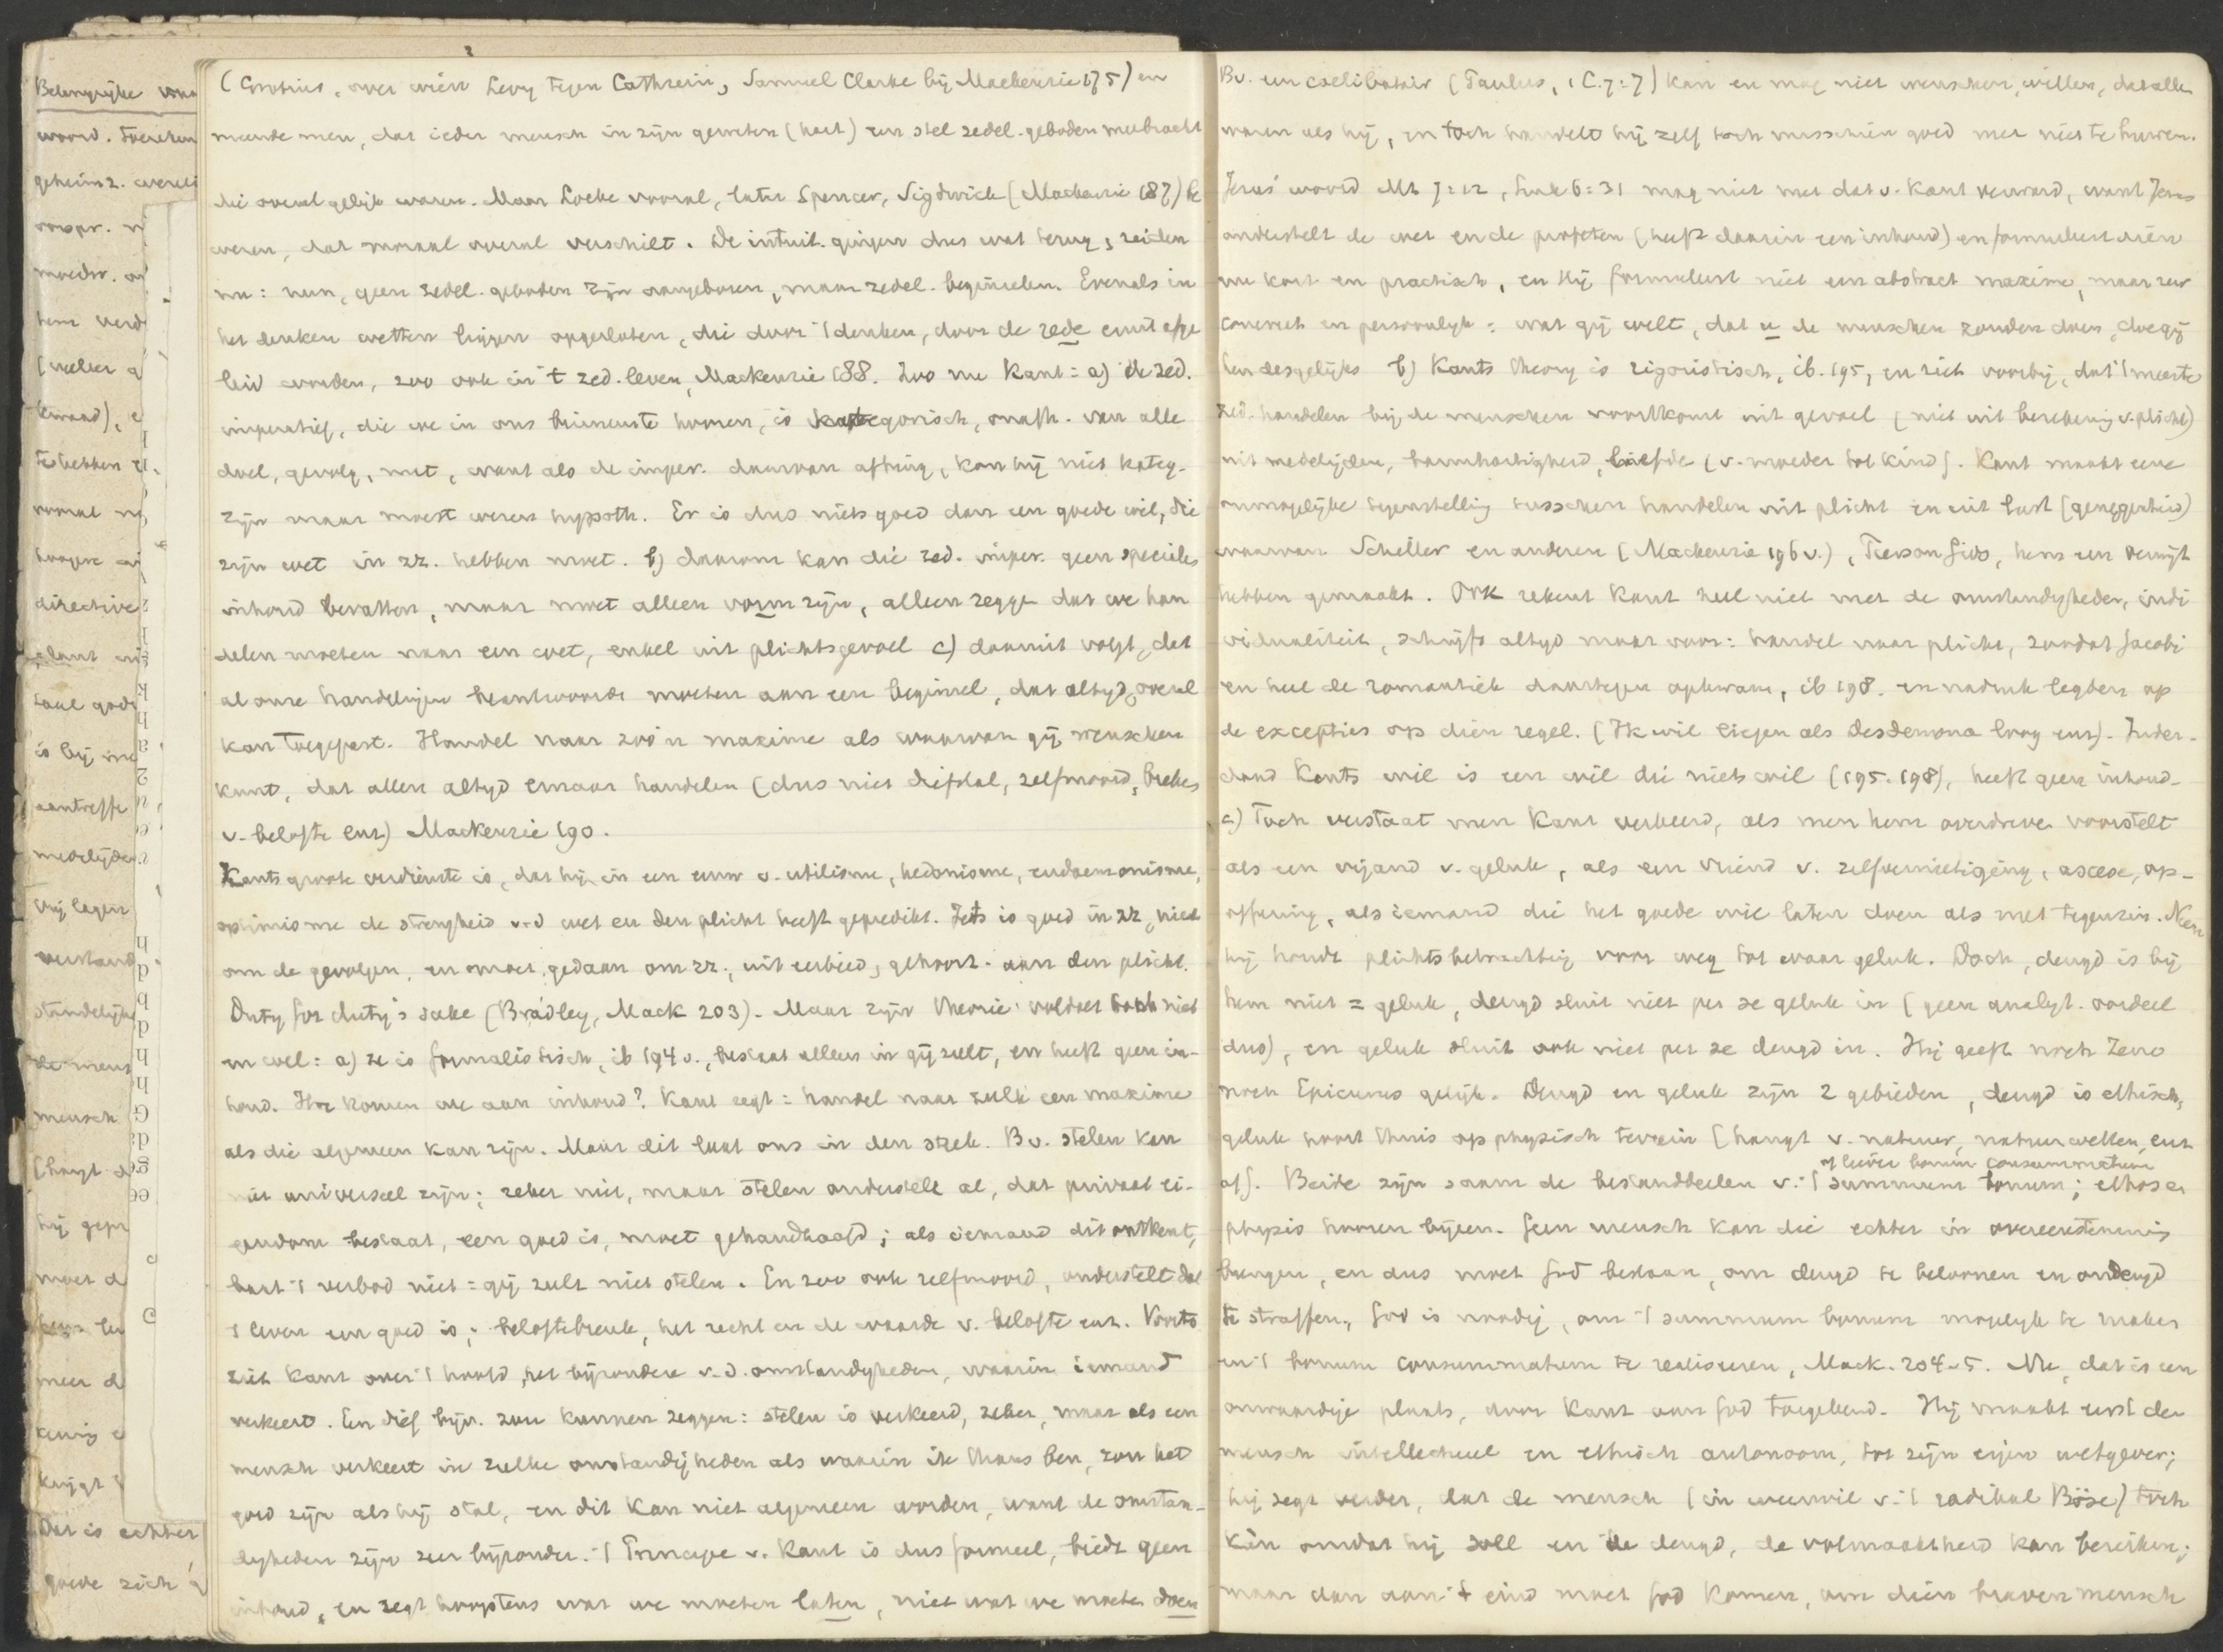 Belangrijke
woord.
geheim z.
directive
aantreffe
verstand
de mens
mensch
(hangt d
hij gepr
moet d
meer d
krijgt
Dat is echter
goede zich
(Grotius, over wien Levy tegen Cathrein, Samuel Clarke bij Mackenzie 175) en
meende men, dat ieder mensch in zijn geweten (hart) een stel zedel. geboden meebracht
die overal gelijk waren. Maar Locke vooral, later Spencer, Sigdwick (Mackenzie 187) be
weren, dat moraal overal verschilt. De intuit. gingen dus wat terug, zeiden
nu: neen, geen zedel. geboden zijn aangeboren, maar zedel. beginselen. Evenals in
het denken wetten liggen opgesloten, die door 't denken, door de rede eruit afge
leid worden, zoo ook in 't zed. leven, Mackenzie 188. Zoo nu Kant: a) de zed.
imperatief, die we in ons binnenste hooren, is kategorisch, onafh. van alle
doel, gevolg, nut, want als de imper. daarvan afhing, kon hij niet kateg.
zijn maar moest wezen hypoth. Er is dus niets goed dan een goede wil, die
zijn wet in zz. hebben moet. b) daarom kan die zed. imper. geen speciale
inhoud bevatten, maar moet alleen vorm zijn, alleen zeggen dat we han
delen moeten naar een wet, enkel uit plichtsgevoel c) daaruit volgt, dat
al onze handelingen beantwoorden moeten aan een beginsel, dat altyd, overal
kan toegepast. Handel naar zoo'n maxime als waarvan gij wenschen
kunt, dat allen altyd ernaar handelen (dus niet diefstal, zelfmoord, breken
v. belofte enz) Mackenzie 190.
Kants groote verdienste is, dat hij in een eeuw v. utilisme, hedonisme, eudaemonisme,
optimisme de strengheid v.d wet en den plicht heeft gepredikt. Iets is goed in zz, niet
om de gevolgen, en moet gedaan om zz., uit eerbied, gehoorz. aan den plicht.
Duty for duty's sake (Bradley, Mack 203). Maar zijn theorie voldoet toch niet
en wel: a) ze is formalistisch, ib 194 v., bestaat alleen in gij zult, en heeft geen in-
houd. Hoe komen we aan inhoud? Kant zegt: handel naar zulk een maxime
als die algemeen kan zijn. Maar dit laat ons in den steek. Bv. stelen kan
niet universeel zijn; zeker niet, maar stelen onderstelt al, dat privaat ei-
gendom bestaat, een goed is, moet gehandhaafd; als iemand dit ontkent,
baat 't verbod niet: gij zult niet stelen. En zoo ook zelfmoord, onderstelt dat
't leven een goed is; beloftebreuk, het recht en de waarde v. belofte enz. Voorts
ziet Kant over 't hoofd, het byzondere v.d. omstandigheden, waarin iemand
verkeert. Een dief bijv. zou kunnen zeggen: stelen is verkeerd, zeker, maar als een
mensch verkeert in zulke omstandigheden als waarin ik thans ben, zou het
goed zijn als hij stal, en dit kan niet algemeen worden, want de omstan-
digheden zijn zeer bijzonder. 't Principe v. Kant is dus formeel, biedt geen
inhoud, en zegt hoogstens wat we moeten laten, niet wat we moeten doen
Bv. een coelibatair (Paulus, 1 C. 7:7) kan en mag niet wenschen, willen, dat allen
waren als hij, en toch handelt hij zelf toch misschien goed met niet te huwen.
Jezus' woord Mt 7:12, Luk 6:31 mag niet met dat v. Kant verward, want Jezus
onderstelt de wet en de profeten (heeft daarin een inhoud) en formuleert dien
nu kort en practisch, en Hij formuleert niet een abstract maxime, maar zeer
concreet en persoonlyk: wat gij wilt, dat u de menschen zouden doen, doe gij
hen desgelijks b) Kants theory is rigoristisch, ib. 195, en ziet voorbij, dat 't meeste
zed. handelen bij de menschen voortkomt uit gevoel (niet uit berekening v. plicht)
uit medelijden, barmhartigheid, liefde (v. moeder tot kind). Kant maakt eene
onmogelijke tegenstelling tusschen handelen uit plicht en uit lust (geneigdheid)
waarvan Schiller en anderen (Mackenzie 196 v.), hem een verwijt
hebben gemaakt. Ook rekent Kant heel niet met de omstandigheden, indi
vidualiteit, schrijft altyd maar voor: handel naar plicht, zoodat Jacobi
en heel de romantiek daartegen opkwam, ib 198. en nadruk legden op
de excepties op dien regel. (Ik wil liegen als Desdemona loog enz). Inder-
daad Kants wil is een wil die niets wil (195. 198), heeft geen inhoud.
c) Toch verstaat men Kant verkeerd, als men hem overdreven voorstelt
als een vijand v. geluk, als een vriend v. zelfvernietiging, ascese, op-
offering, als iemand die het goede wil laten doen als met tegenzin. Neen
hij houdt plichtsbetrachting voor weg tot waar geluk. Doch, deugd is bij
hem niet = geluk, deugd sluit niet per se geluk in (geen analyt. oordeel
dus), en geluk sluit ook niet per se deugd in. Hij geeft noch Zeno
noch Epicurus gelijk. Deugd en geluk zijn 2 gebieden, deugd is ethisch,
geluk hoort thuis op physisch terrein (hangt v. natuur, natuurwetten, enz
of liever bonum consummatum
af). Beide zijn saam de bestanddeelen v. 't summum bonum; ethos en
physis komen bijeen. Geen mensch kan die echter in overeenstemming
brengen, en dus moet God bestaan, om deugd te beloonen en ondeugd
te straffen., God is noodig, om 't summum bonum mogelyk te maken
en 't bonum consummatum te realiseren, Mack. 204-5. Nu, dat is een
onwaardige plaats, door Kant aan God toegekend. Hij maakt eerst den
mensch intellectueel en ethisch autonoom, tot zijn eigen wetgever;
hij zegt verder, dat de mensch (in weerwil v. 't radikal Böse) toch
kan omdat hij soll en de deugd, de volmaaktheid kan bereiken;
maar dan aan 't eind moet God komen, om dien braven mensch